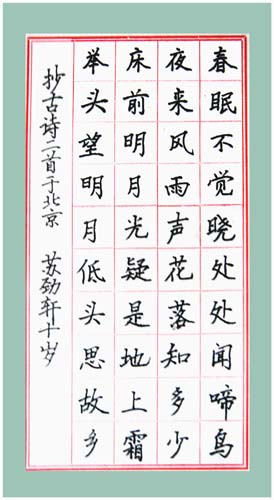 春眠不觉晓处处闻啼鸟
夜来风雨声花落知多少
床前明月光疑是地上霜
举头望明月低头思故乡
抄古诗二首于北京 苏劲轩十岁